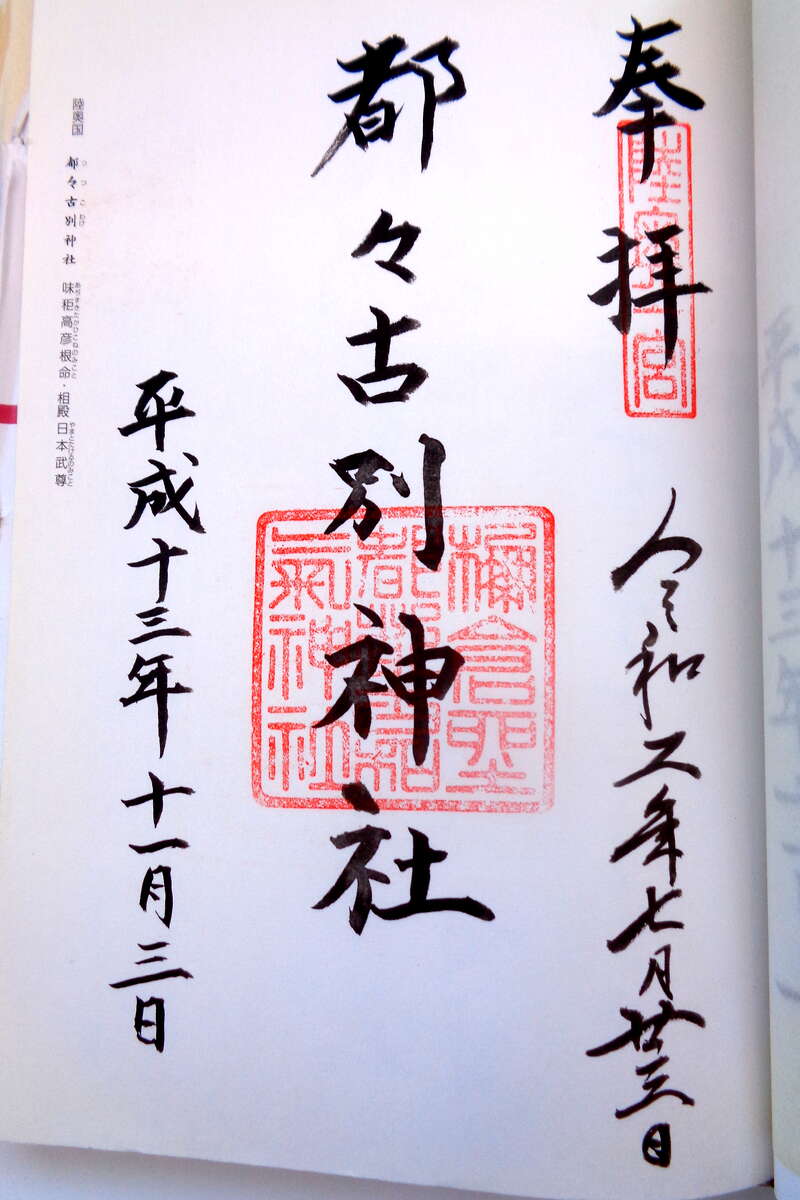 奉拝
陸奥一宮
令和二年七月廿三日
都々古別神社
氣神社
平成十三年十一月三日
陸奥国 都々古別神社 味耜高彦根命・相殿日本武尊